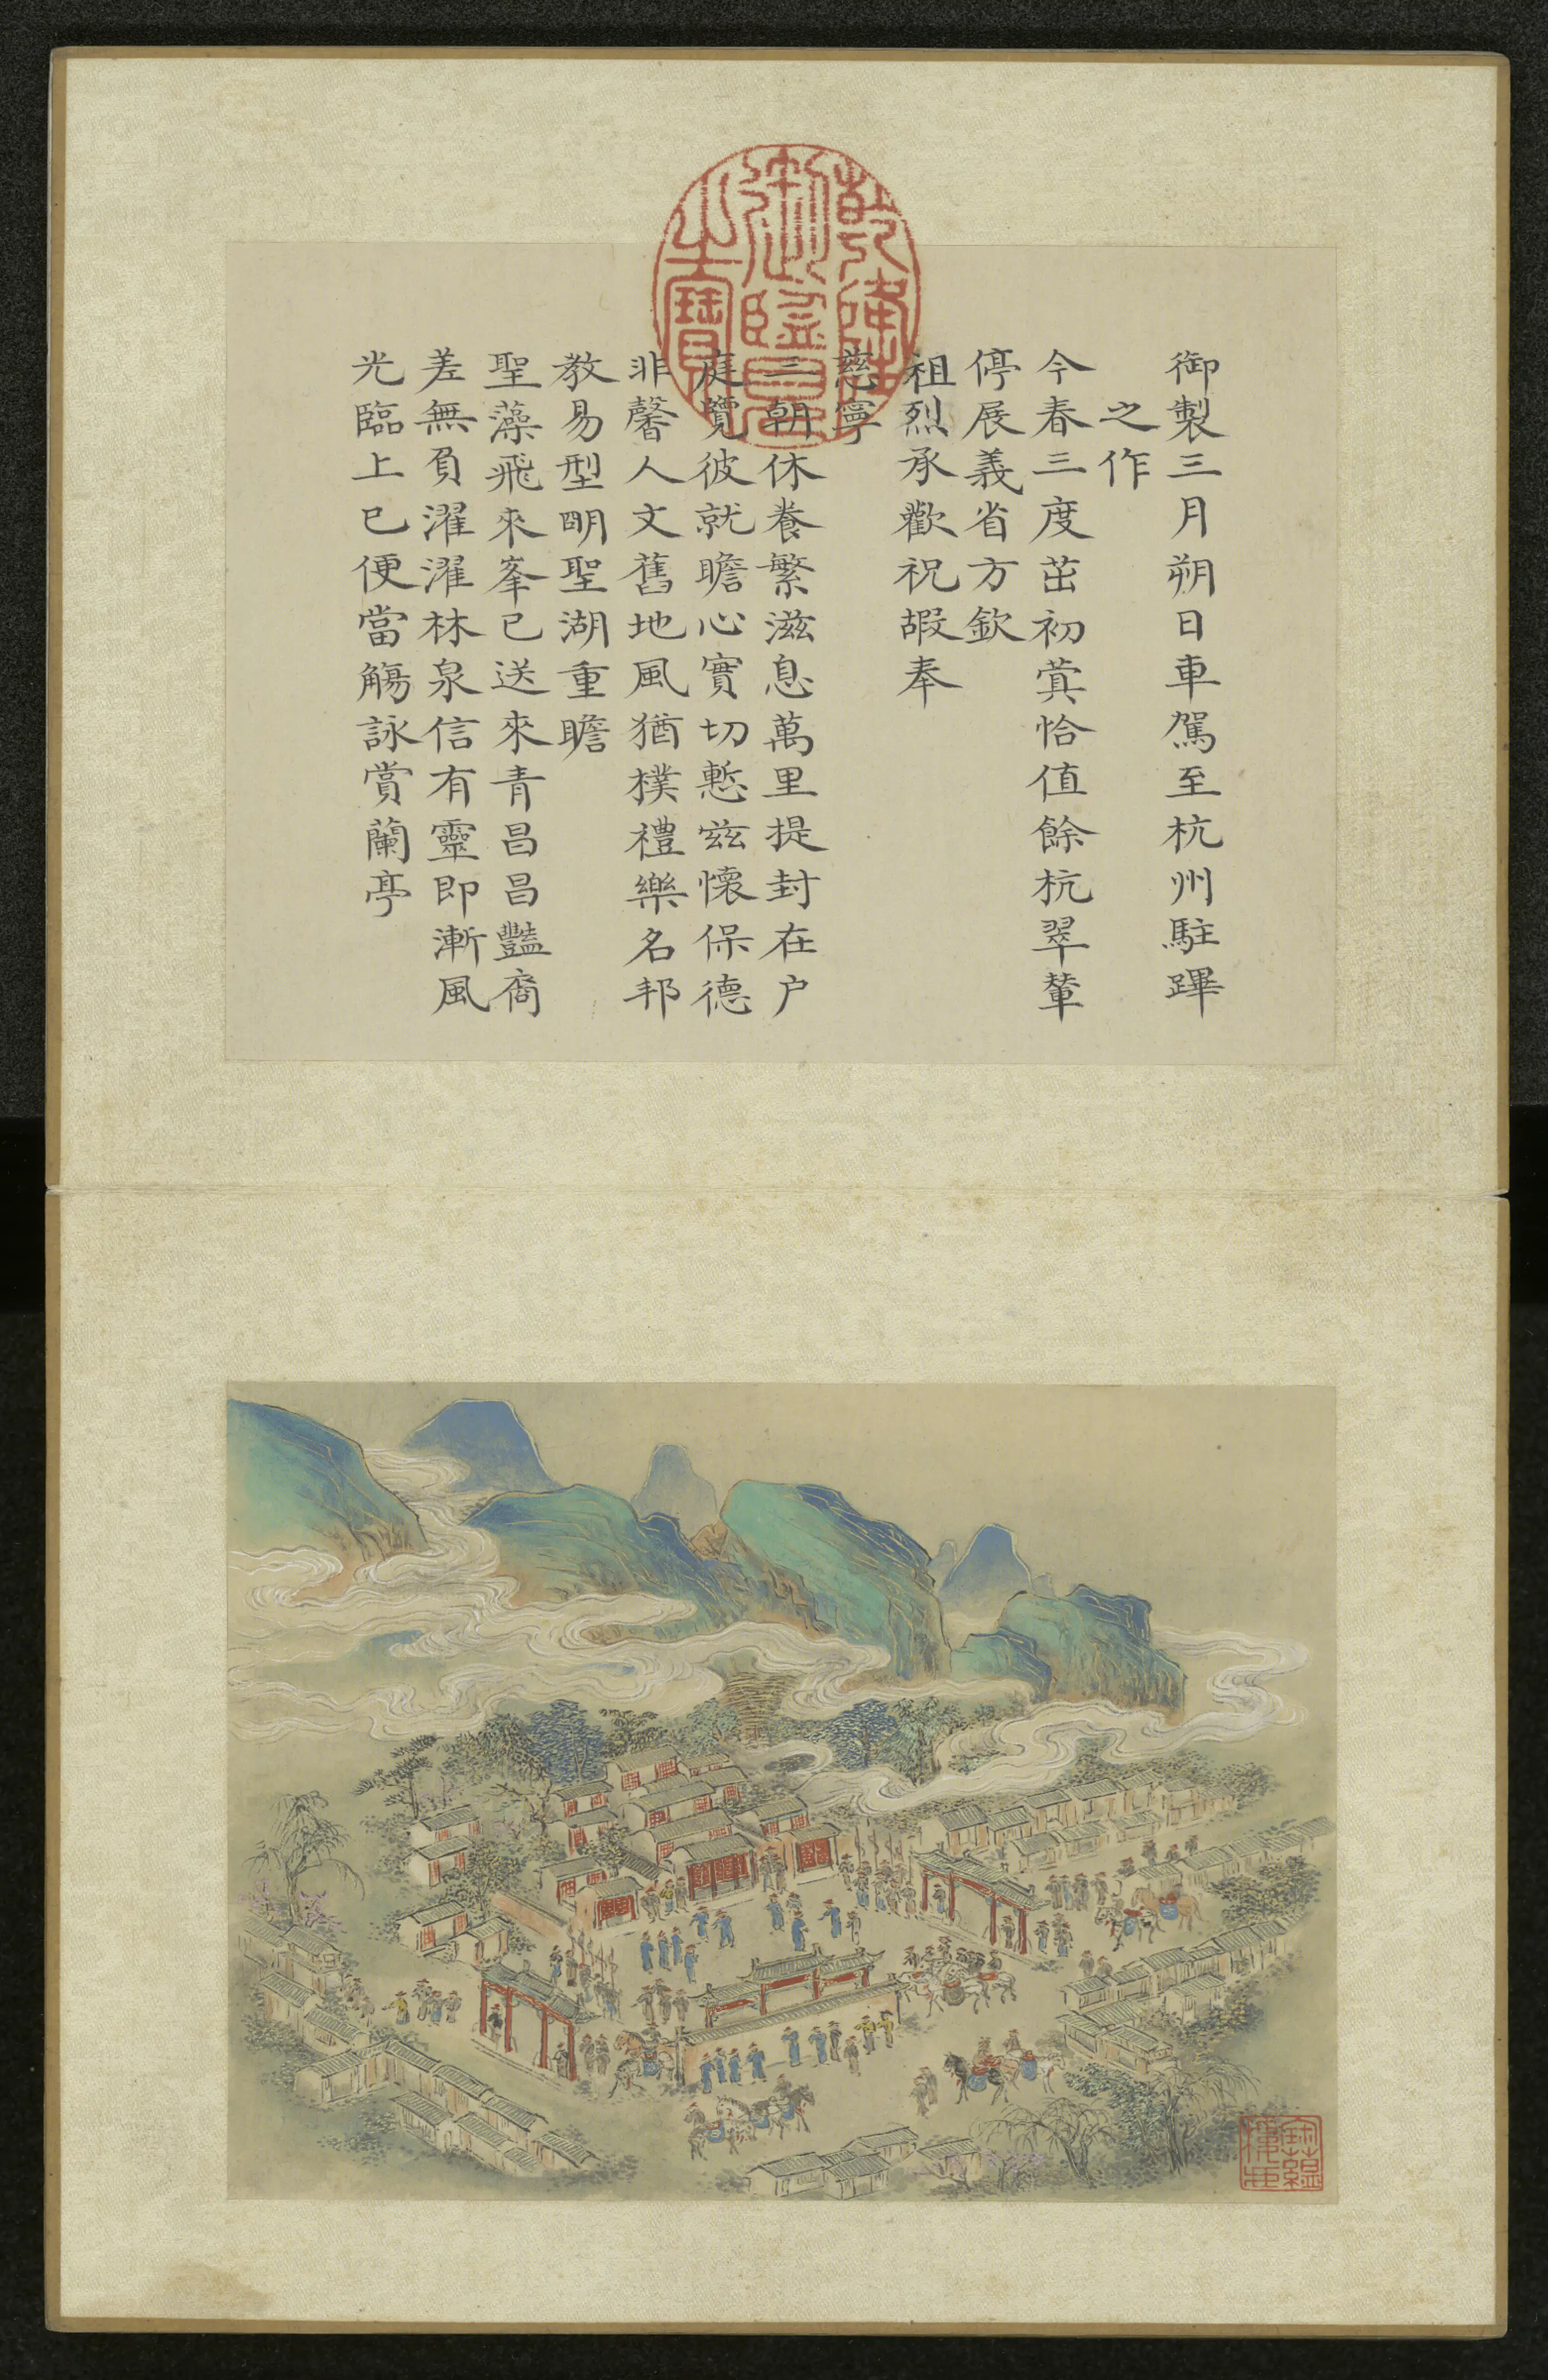 御製三月朔日車駕至杭州駐蹕
之作
今春三度茁初蓂恰值餘杭翠葷
停展義省方欽
祖烈承歡祝嘏奉
慈寧
三朝休養繁滋息萬里提封在户
庭覽彼就瞻心實切慙茲懷保德
非馨人文舊地風猶樸禮樂名邦
教易型明聖湖重瞻
聖藻飛來峯已送來青昌昌豔裔
差無負濯濯林泉信有靈即漸風
光臨上巳便當觴詠賞蘭亭
乾隆御覽之寶